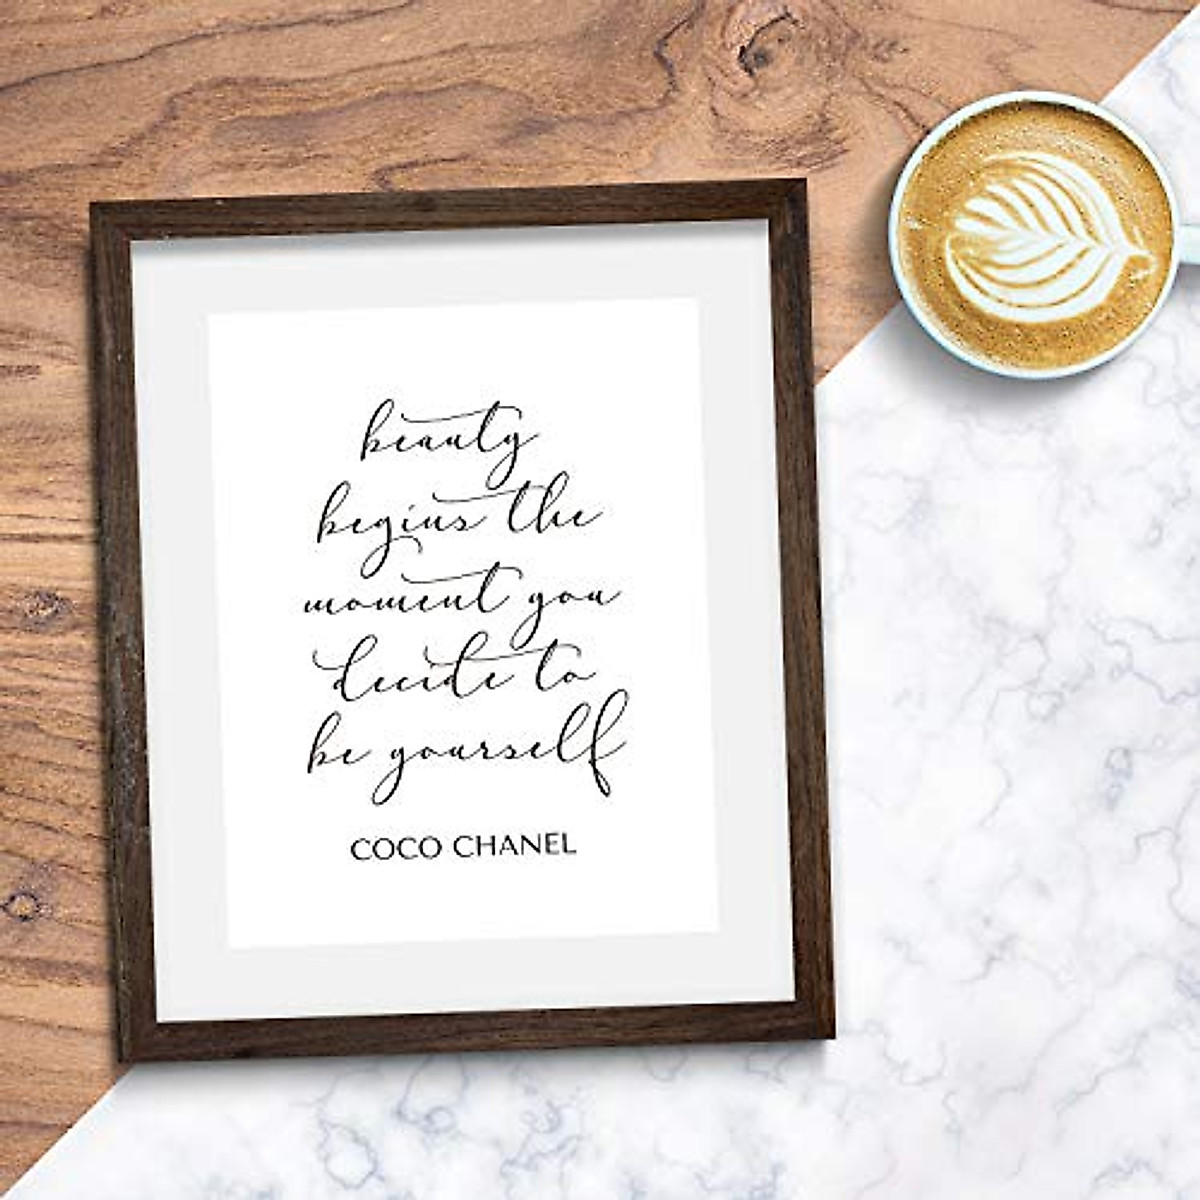 beauty
begins the
moment you
decide to
be yourself
COCO CHANEL